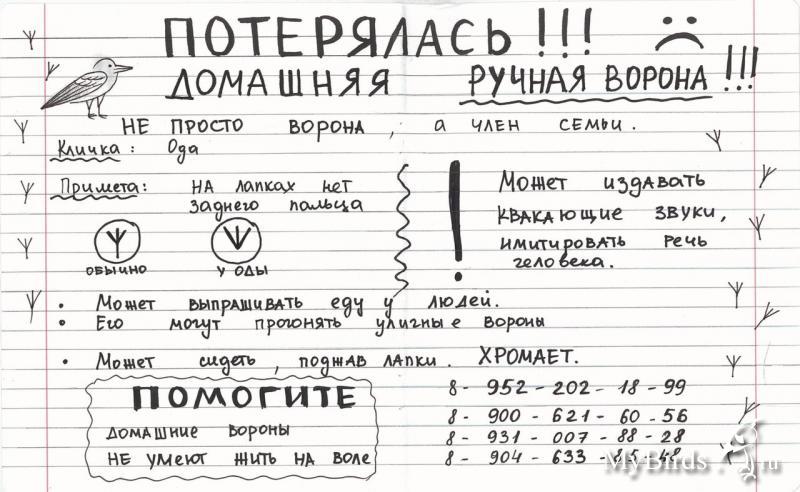 ПОТЕРЯЛАСЬ!!!
ДОМАШНЯЯ РУЧНАЯ ВОРОНА!!!
НЕ ПРОСТО ВОРОНА, а член семьи.
Кличка: Ода
Примета: на лапках нет
заднего пальца
обычно
у Оды
! Может издавать
квакающие звуки,
имитировать речь
человека.
• Может выпрашивать еду у людей.
• Его могут прогонять уличные вороны
• Может сидеть, поджав лапки. ХРОМАЕТ.
ПОМОГИТЕ
домашние вороны
не умеют жить на воле
8-952-202-18-99
8-900-621-60-56
8-931-007-88-28
8-904-633-85-48
MyBirds.ru